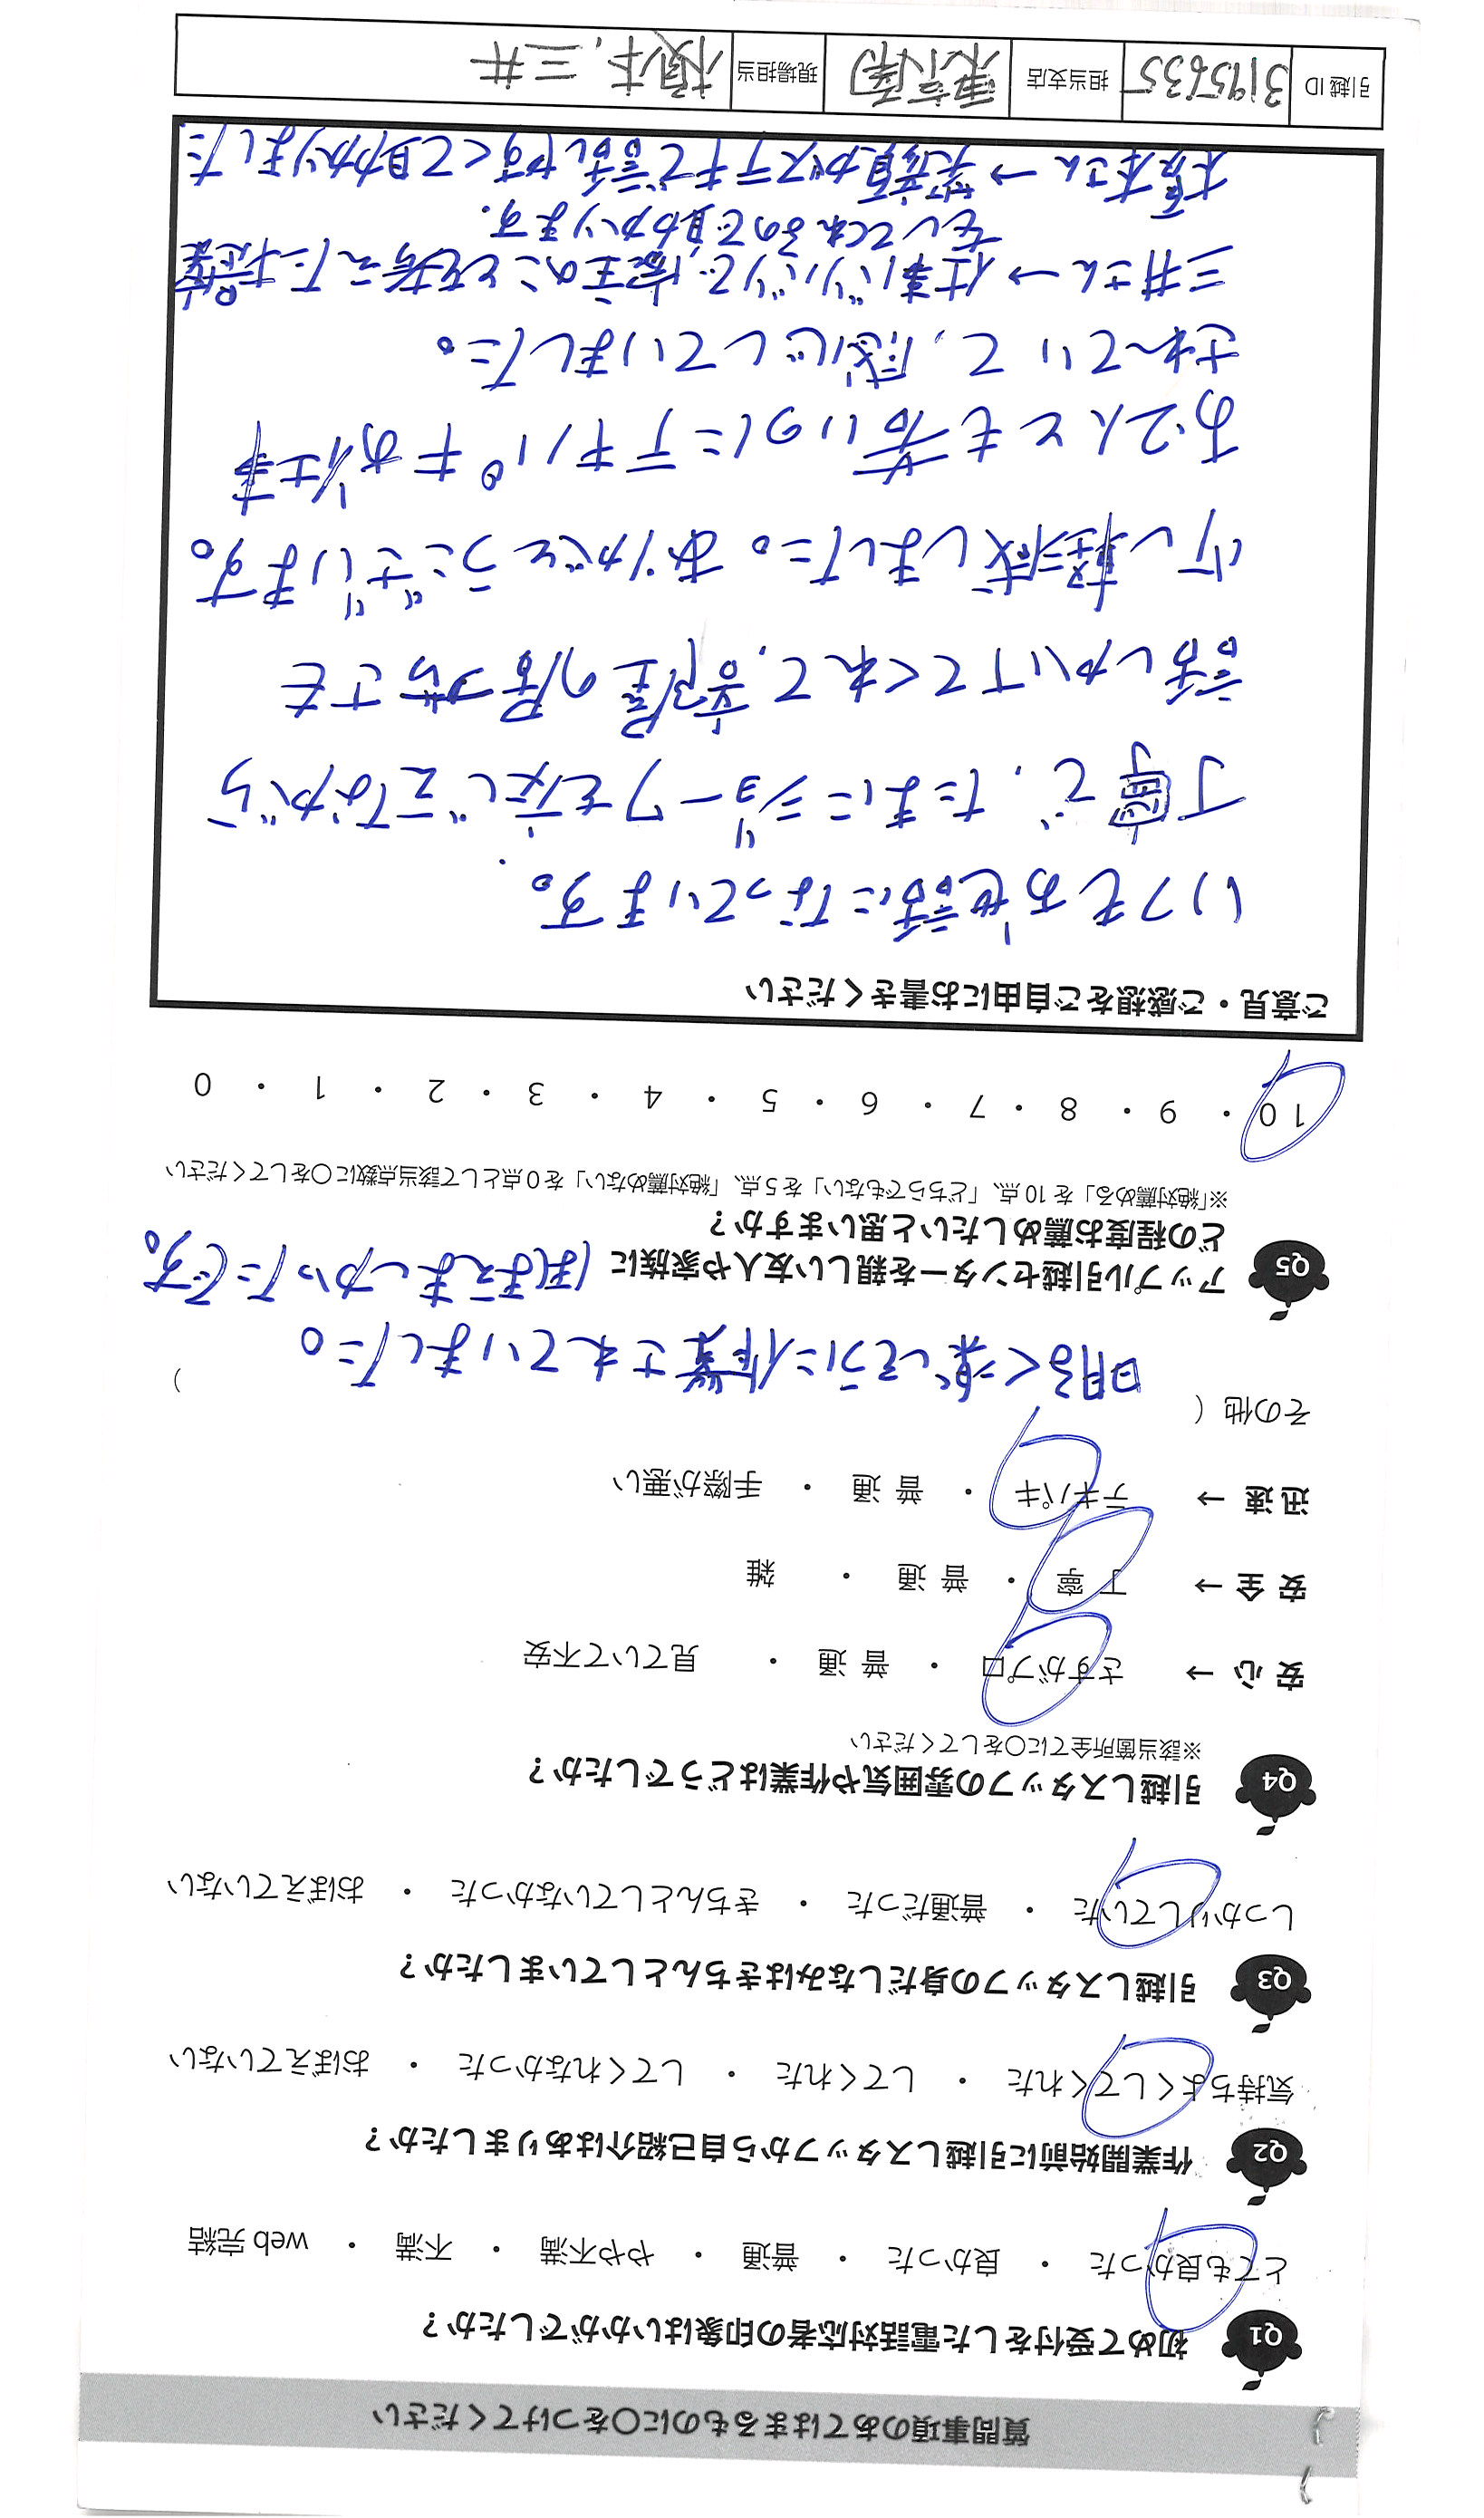 質問事項のあてはまるものに〇をつけてください
Q1 初めて受付をした電話対応者の印象はいかがでしたか？
とても良かった ・ 良かった ・ 普通 ・ やや不満 ・ 不満 ・ web 完結
Q2 作業開始前に引越しスタッフから自己紹介はありましたか？
気持ちよくしてくれた ・ してくれた ・ してくれなかった ・ おぼえていない
Q3 引越しスタッフの身だしなみはきちんとしていましたか？
しっかりしていた ・ 普通だった ・ きちんとしていなかった ・ おぼえていない
Q4 引越しスタッフの雰囲気や作業はどうでしたか？
※該当箇所全てに〇をしてください
安 心 → さすがプロ ・ 普 通 ・ 見ていて不安
安 全 → 丁 寧 ・ 普 通 ・ 雑
迅 速 → テキパキ ・ 普 通 ・ 手際が悪い
その他（ 明るく楽しそうに作業されていました。 ）
ほほえましかったです。
Q5 アップル引越センターを親しい友人や家族に
どの程度お薦めしたいと思いますか？
※「絶対薦める」を 10 点、「どちらでもない」を 5 点、「絶対薦めない」を 0 点として該当点数に〇をしてください
10 ・ 9 ・ 8 ・ 7 ・ 6 ・ 5 ・ 4 ・ 3 ・ 2 ・ 1 ・ 0
ご意見・ご感想をご自由にお書きください
いつもお世話になっています。
丁寧で、たまにジョークを交じえながら
話しかけてくれて、部屋の居づらさも
少し軽減しました。ありがとうございます。
お2人とも若いのにテキパキお仕事
されていて、感心していました。
三井さん→仕事バリバリで、家主のことを考えた提案
をしてくれるので助かります。
榎本さん→笑顔がステキで話しやすくて助かりました
引越 ID 3195635 担当支店 東京南 現場担当 榎本, 三井